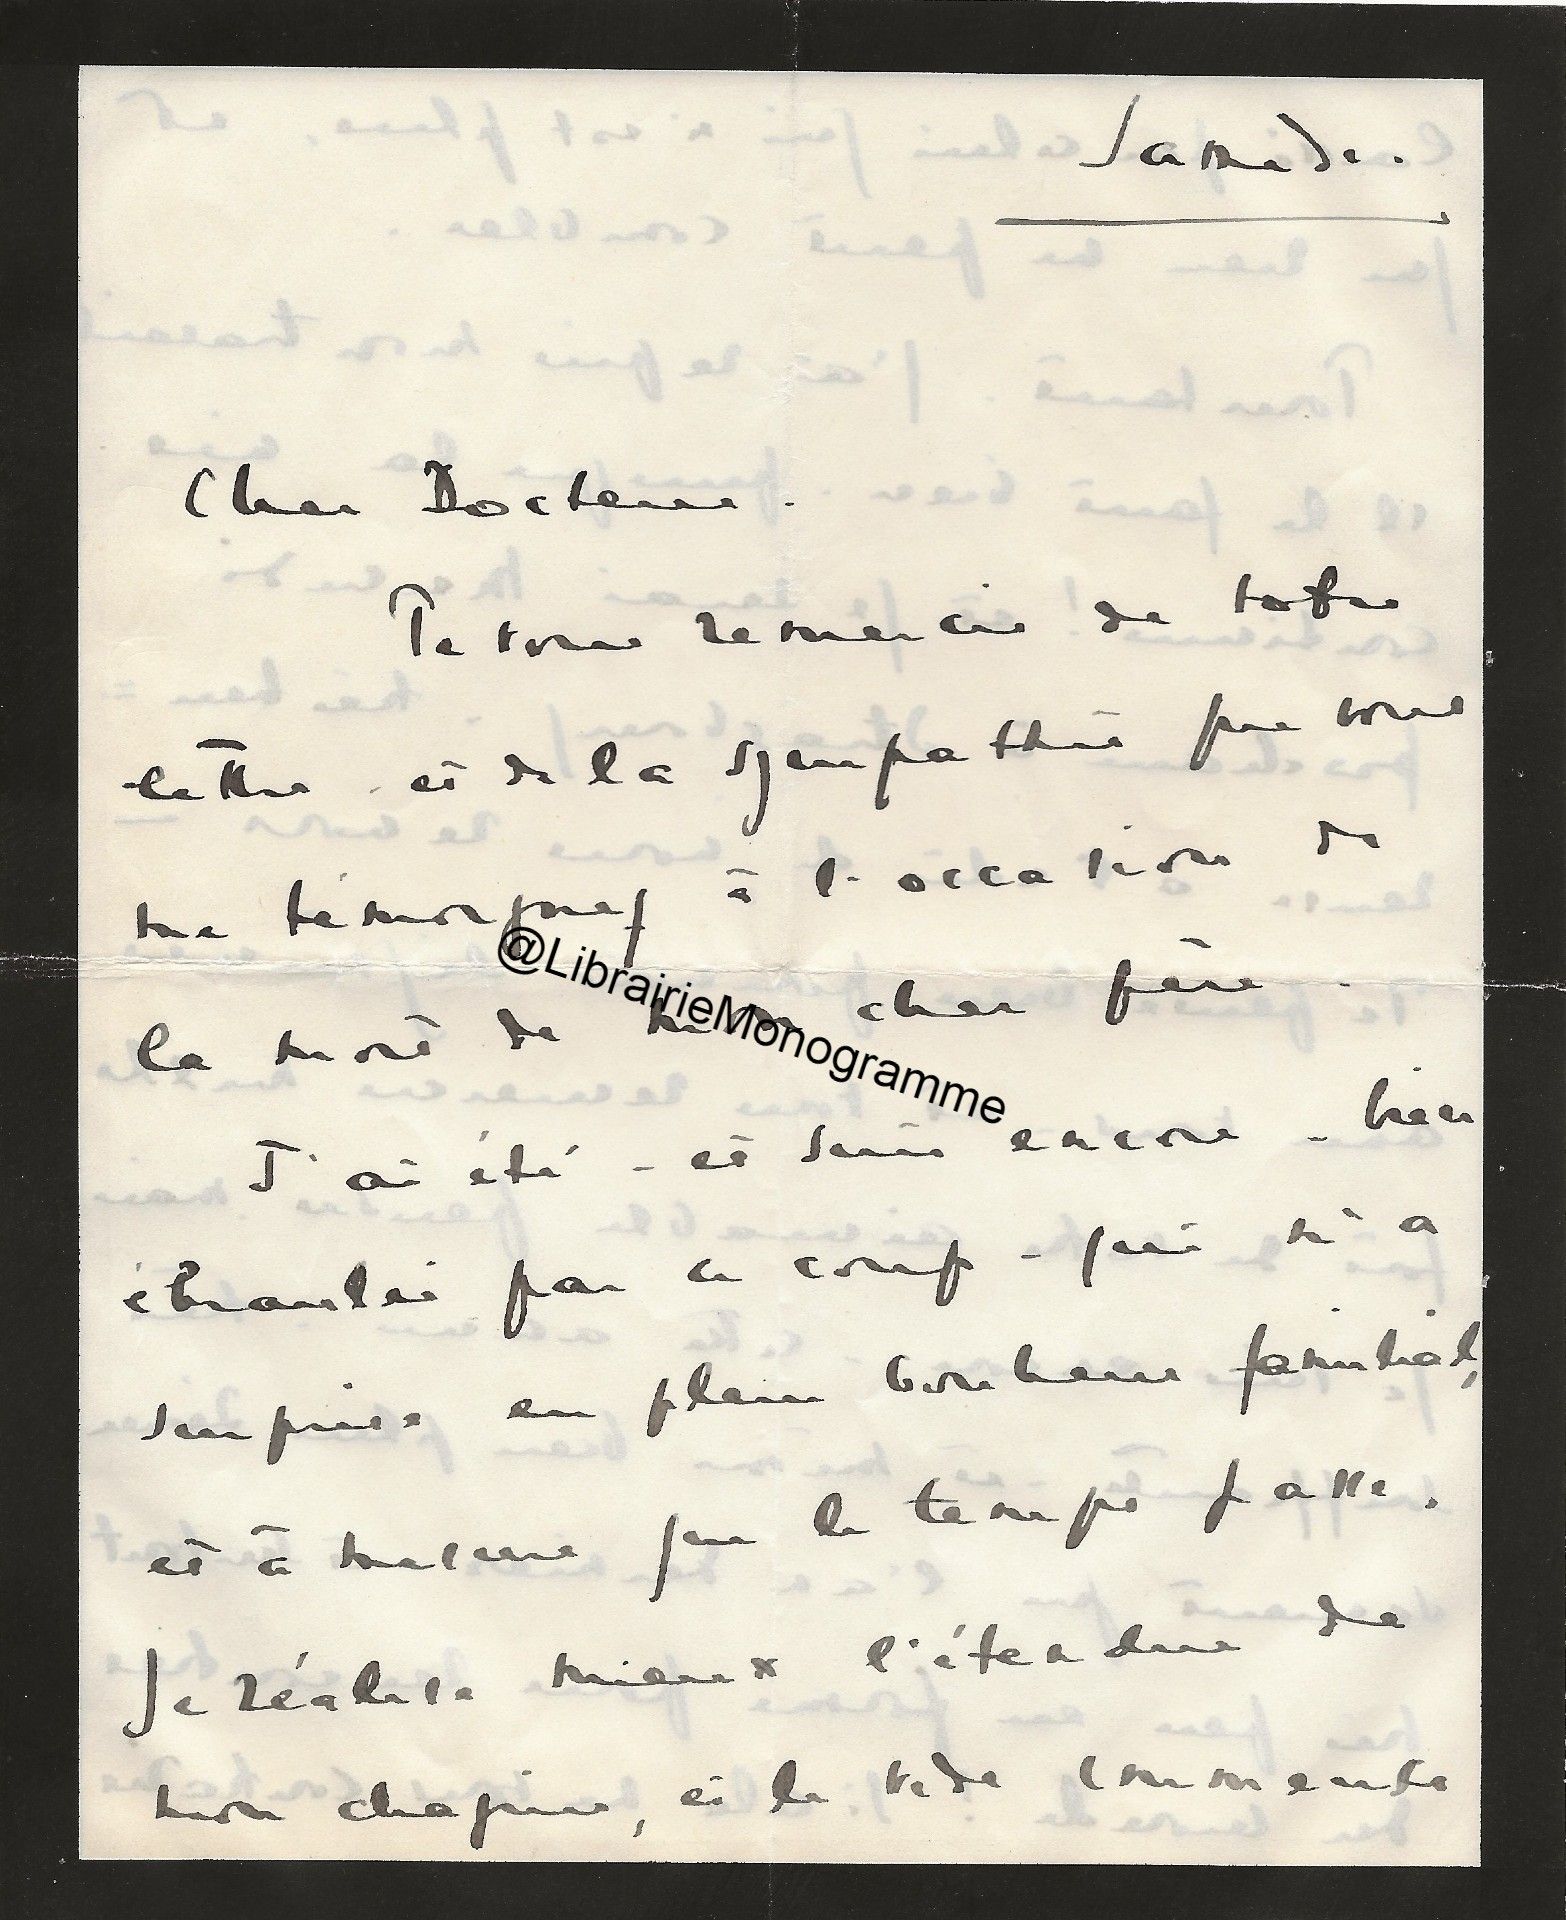 Samedi.
Cher Docteur.
Je vous remercie de votre
lettre, et de la sympathie que vous
me témoignez à l'occasion de
la mort de mon cher père.
@LibrairieMonogramme
J'ai été - et suis encore - bien
ébranlée par ce coup - qui m'a
surprise en plein bonheur familial,
et à mesure que le temps passe,
je réalise mieux l'étendue de
mon chagrin, et le vide immense